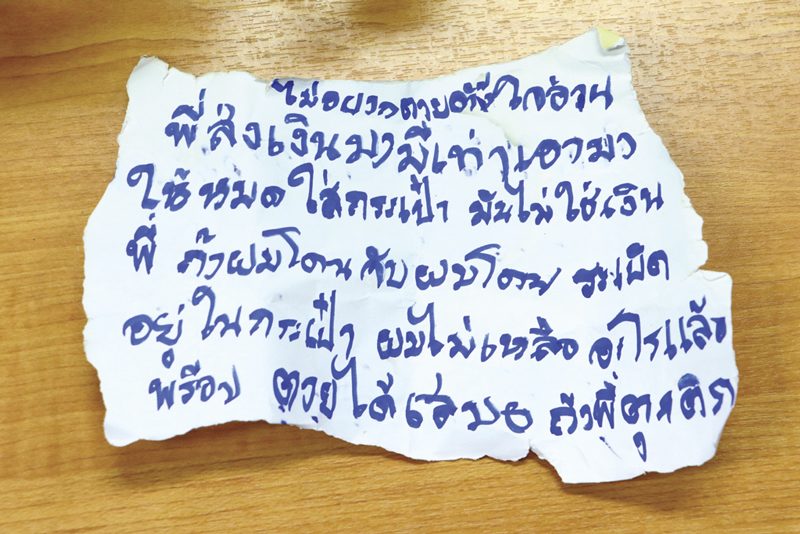 ไม่อยากตายอย่าใจอ้วน
พี่ส่งเงินมามีเท่าไหร่เอามา
ให้หมด ใส่กระเป๋า มันไม่ใช่เงิน
พี่ ถ้าผมโดน กับผมโดน ระเบิด
อยู่ในกระเป๋า ผมไม่เหลือ อะไรแล้ว
พร้อม ตายได้เสมอ ถ้าพี่ตุกติก